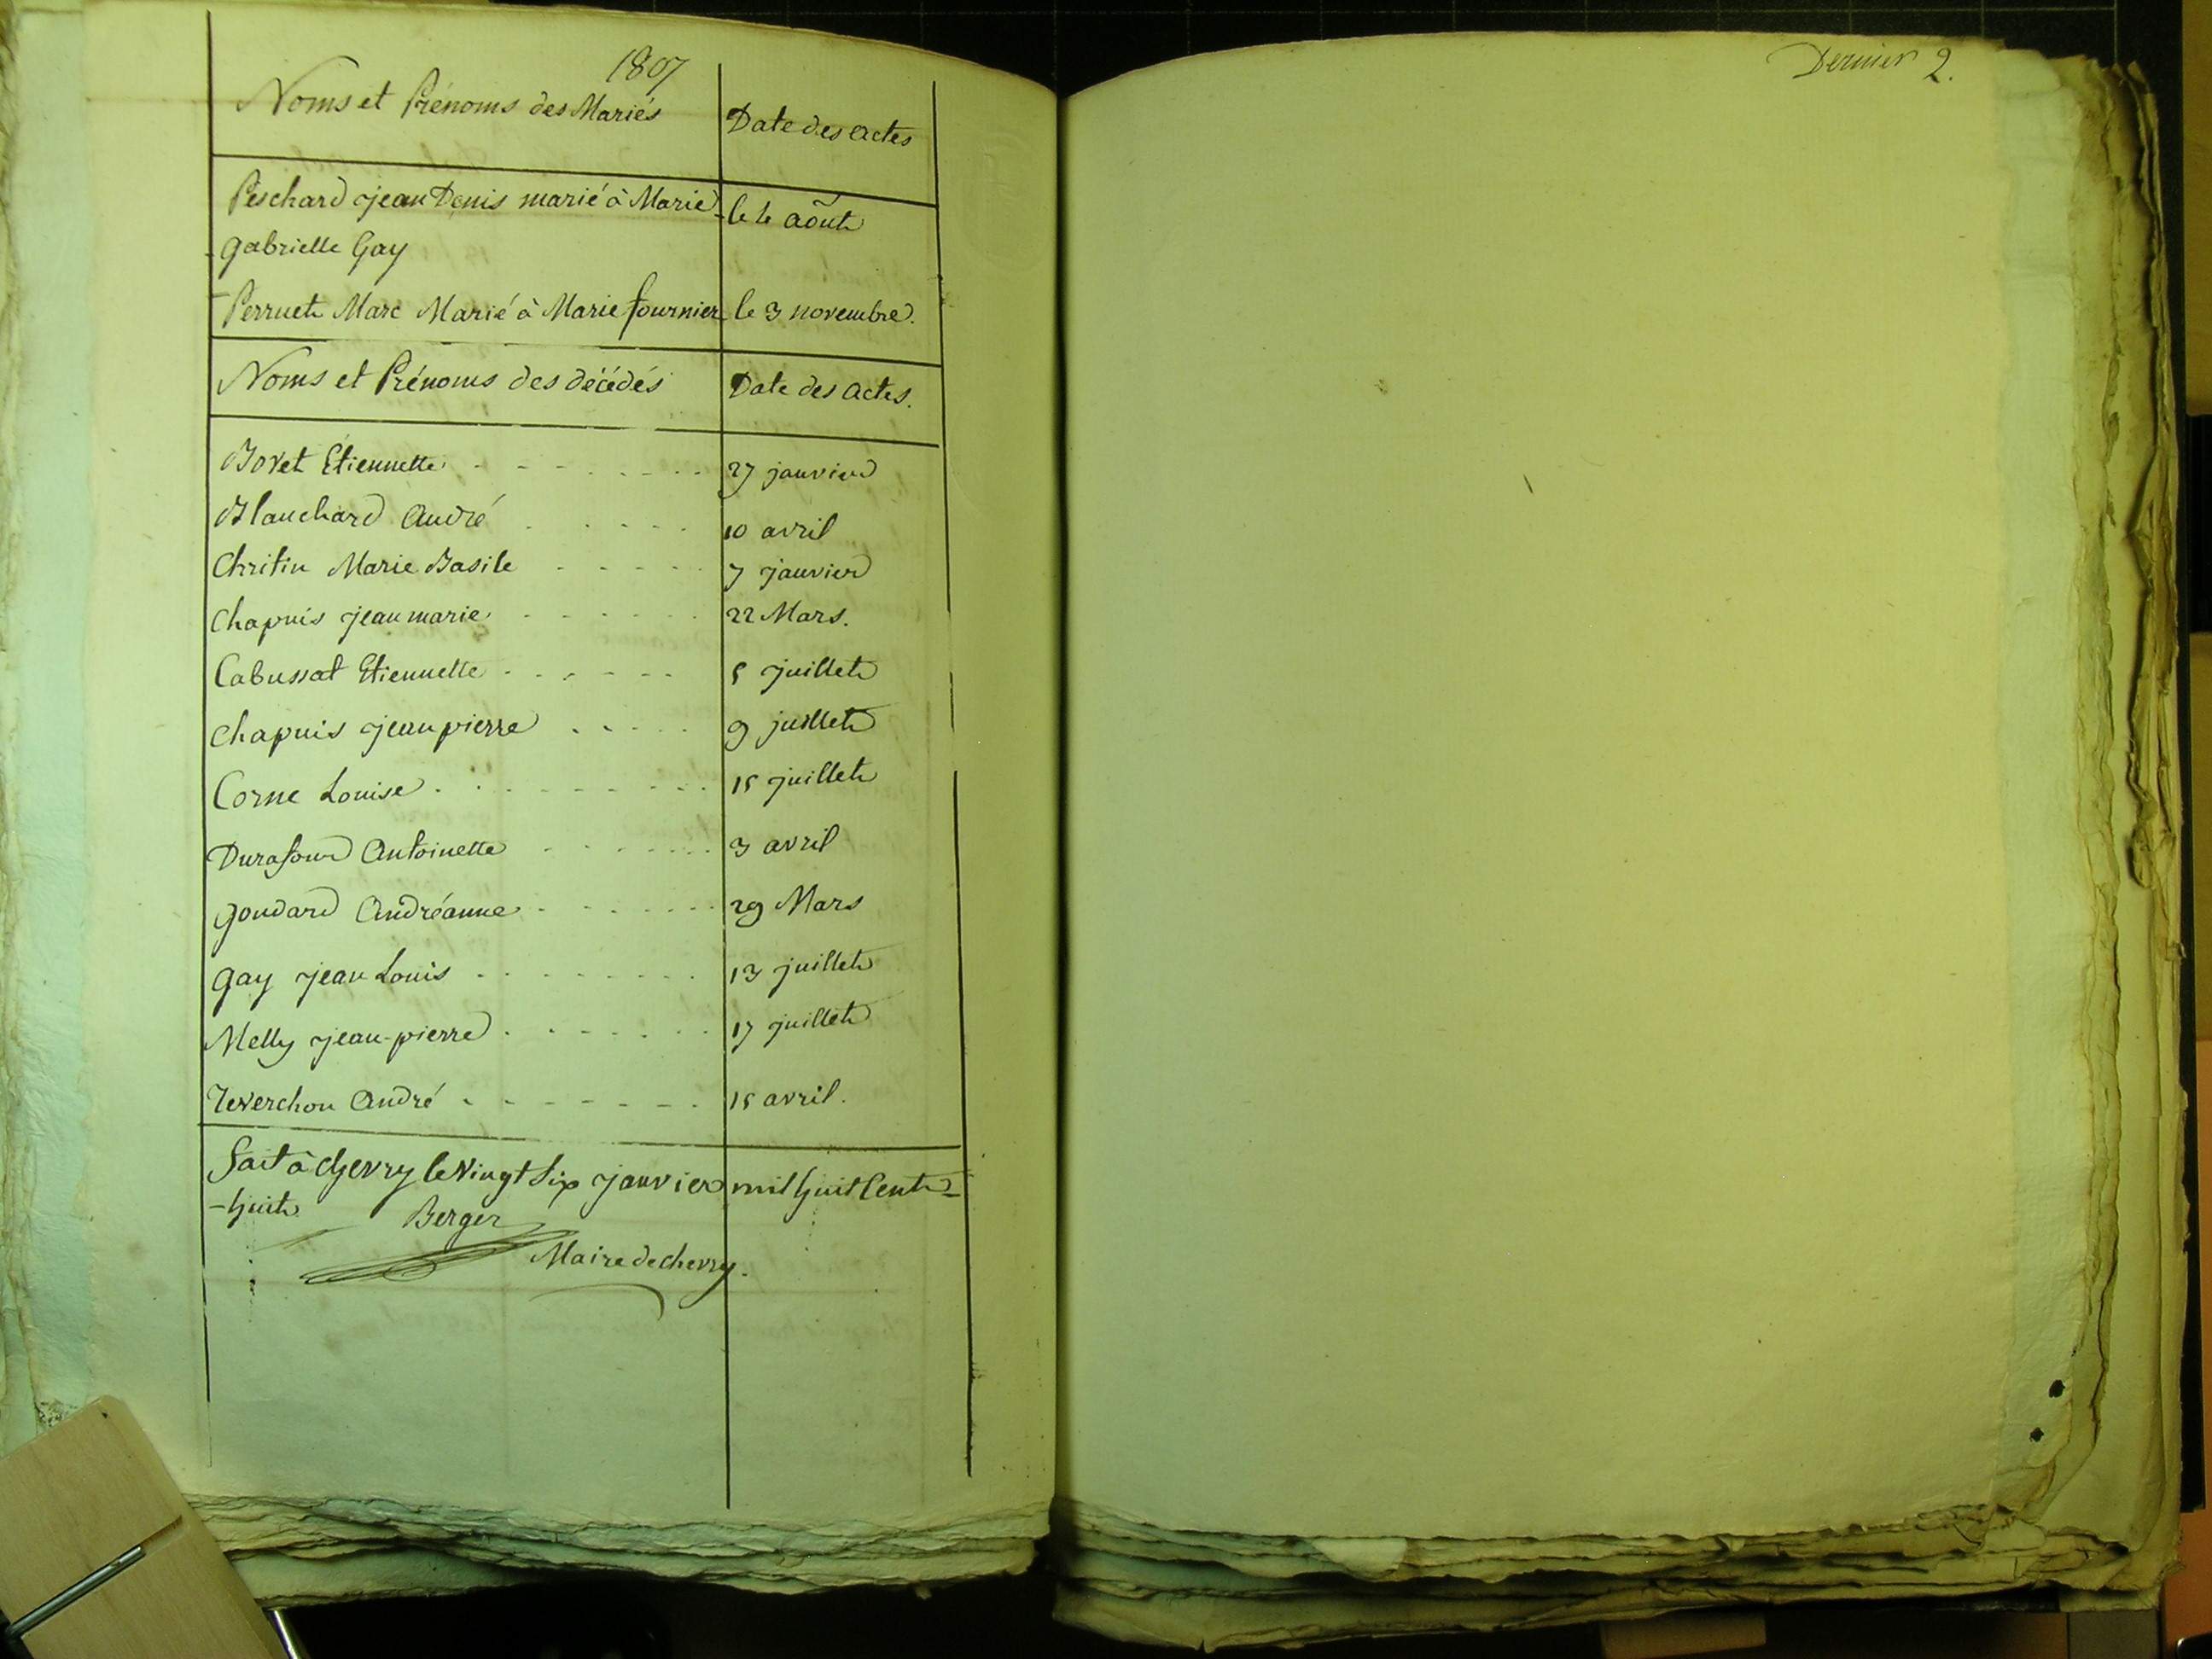 1807
Noms et Prénoms des Mariés Date des actes
Peschard jean Denis marié à Marie le 4 août
gabrielle Gay
Perruet Marc Marié à Marie fournier le 3 novembre.
Noms et Prénoms des décédés Date des actes.
Bovet Étiennette 27 janvier
Blanchard André 10 avril
Chritin Marie Basile 7 janvier
Chapuis jean marie 22 Mars.
Cabussat Etiennette 5 juillet
Chapuis jean pierre 9 juillet
Corne Louise 15 juillet
Durafour Antoinette 3 avril
goudard Andréanne 29 Mars
gay jean Louis 13 juillet
Melly jean-pierre 17 juillet
Reverchon André 15 avril.
fait à chevry le vingt six janvier mil huit Cent
-huit
Berger
Maire de chevry.
Dernier 2.